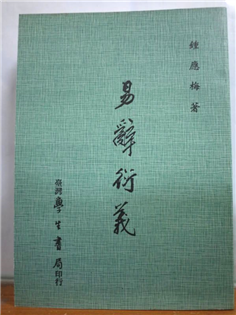 鍾應梅著
易辭衍義
臺灣學生書局印行